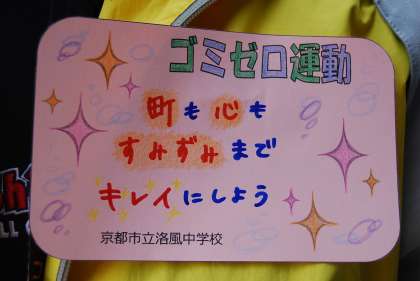 ゴミゼロ運動
町も心も
すみずみまで
キレイにしよう
京都市立洛風中学校